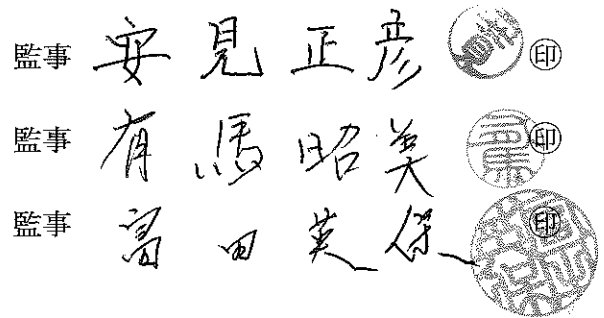 監事 安見正彦 印
監事 有馬昭英 印
監事 富田英保 印